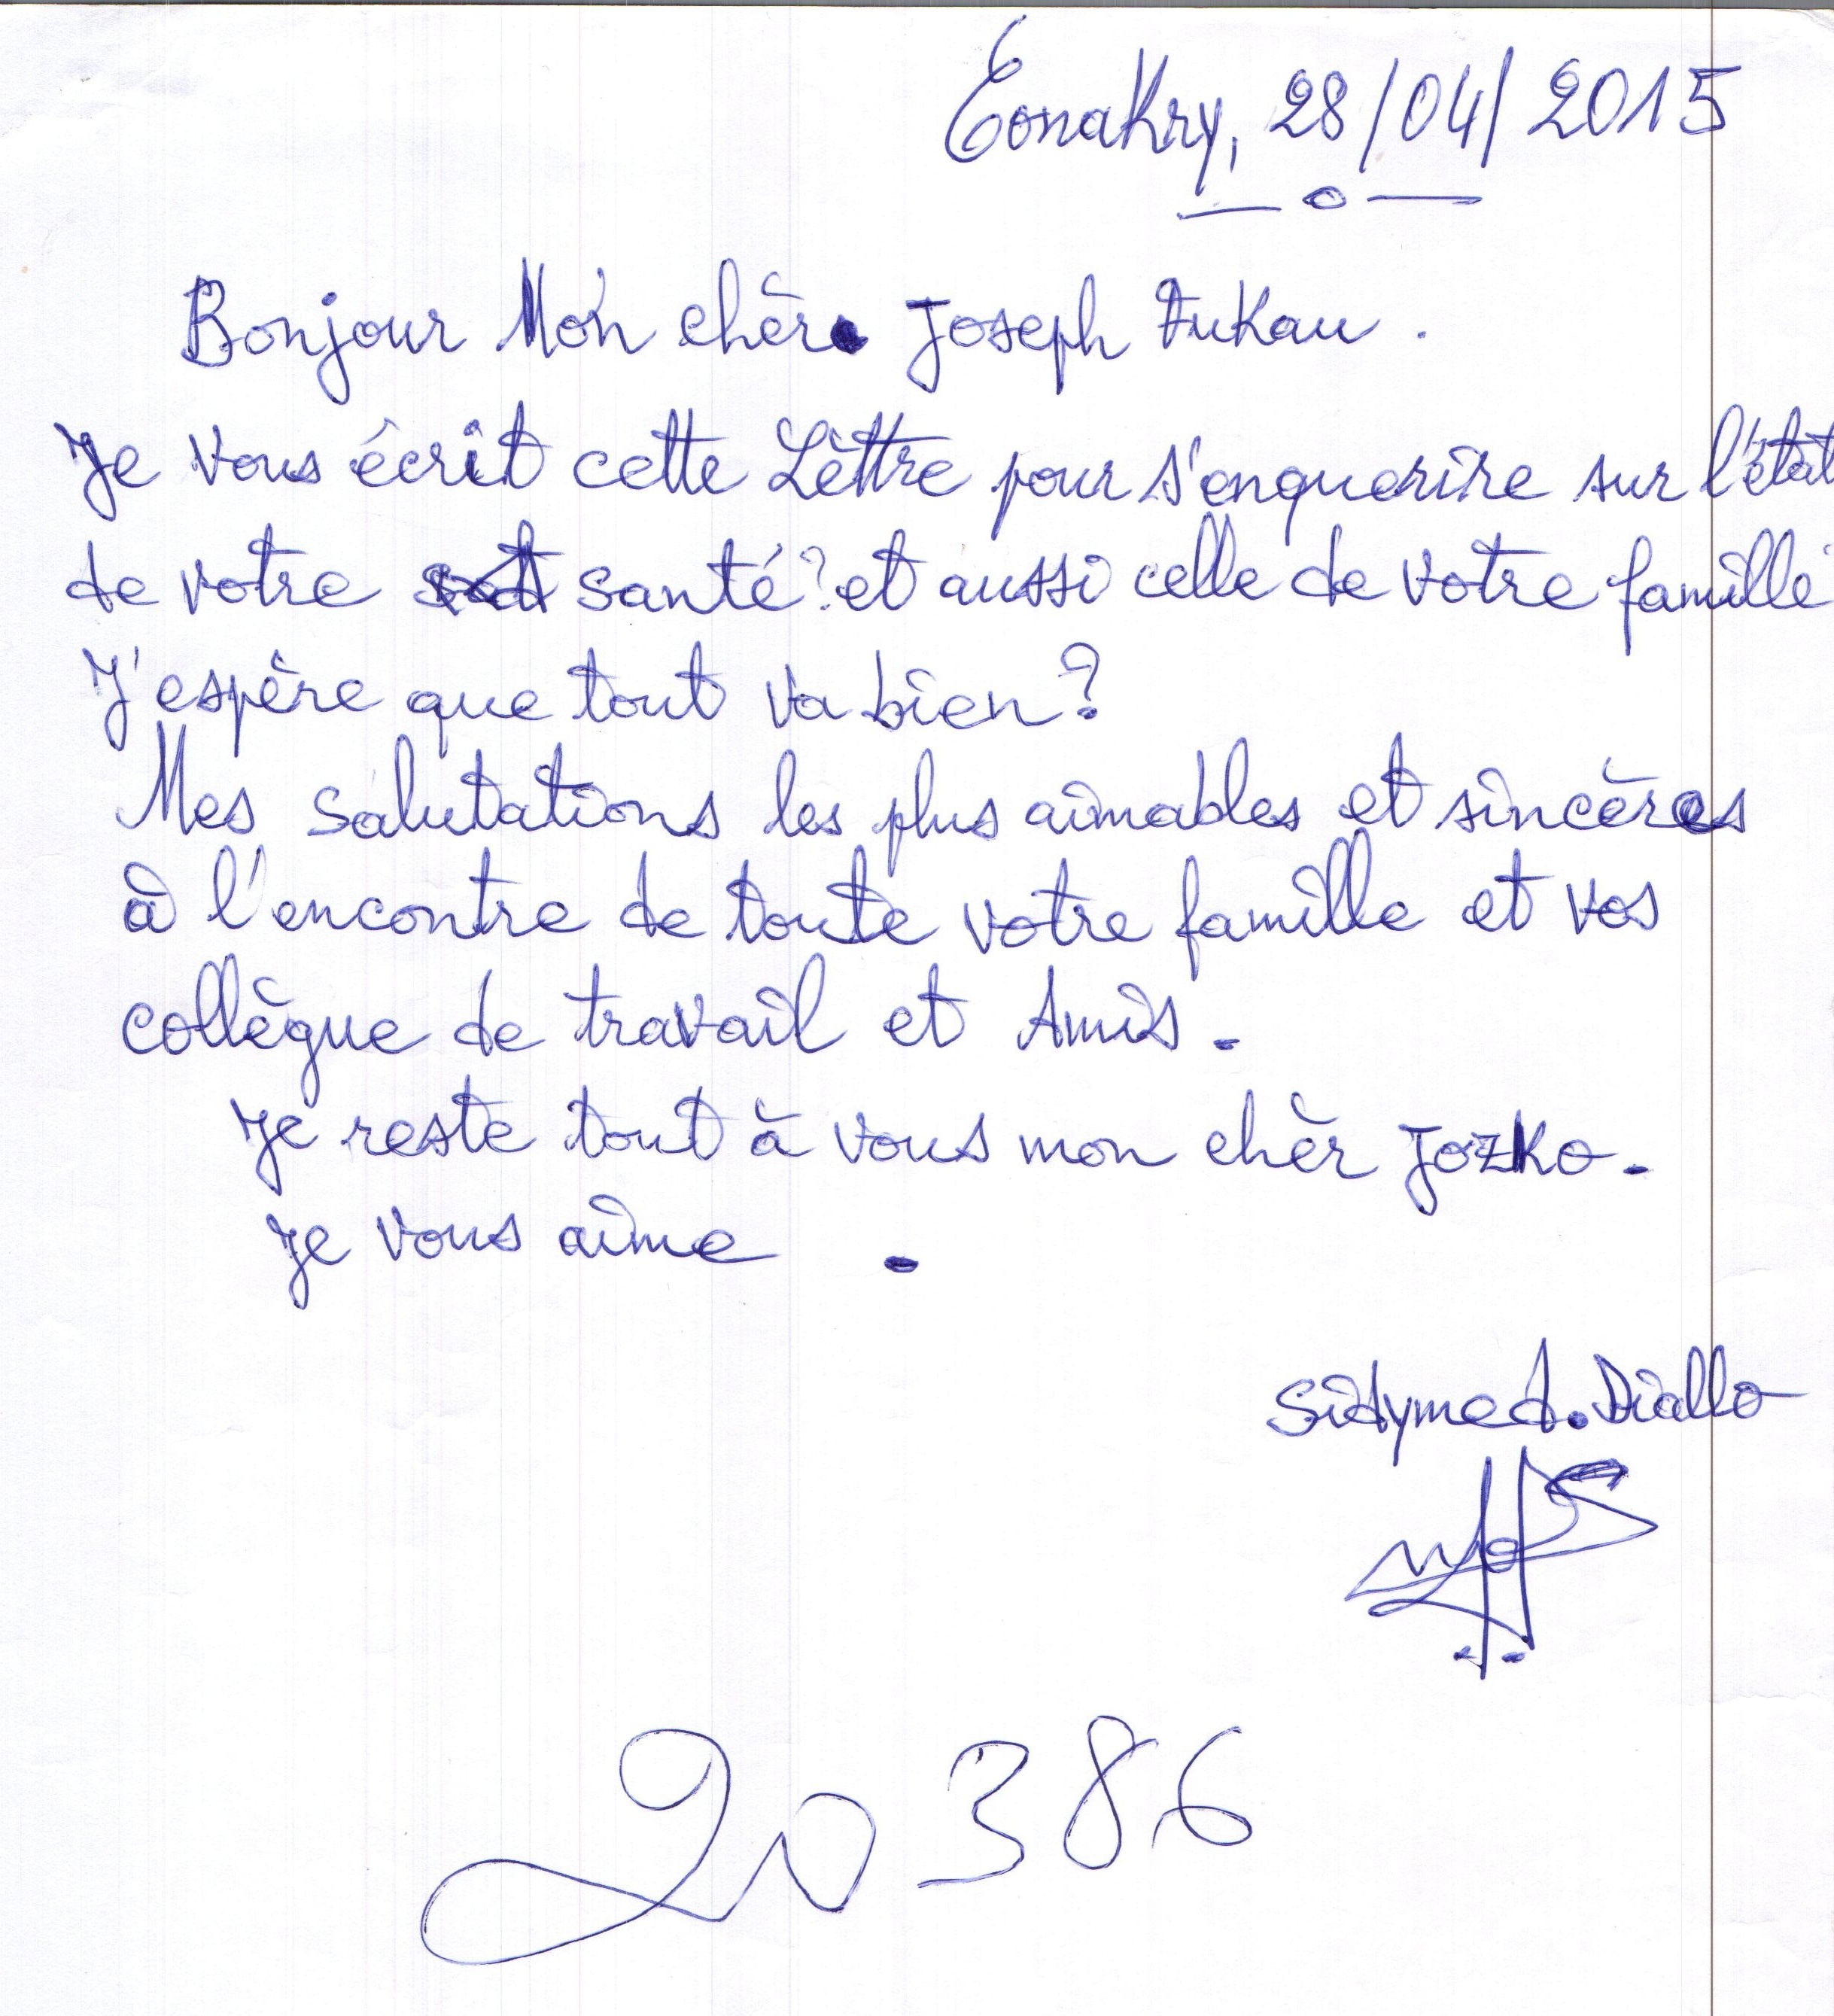 Conakry, 28/04/2015
Bonjour Mon chèr Joseph Zukau.
Je vous écrit cette Lèttre pour s'enquerire sur l'état
de votre santé? et aussi celle de votre famille
J'espère que tout va bien?
Mes salutations les plus aimables et sincères
à l'encontre de toute votre famille et vos
collègue de travail et Amis.
Je reste tout à vous mon chèr Jozko.
Je vous aime .
Sidymed.Diallo
20386